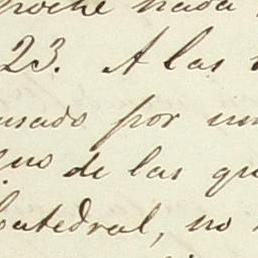 noche nada
23. A las
usado por un
de las qu
Catedral, no